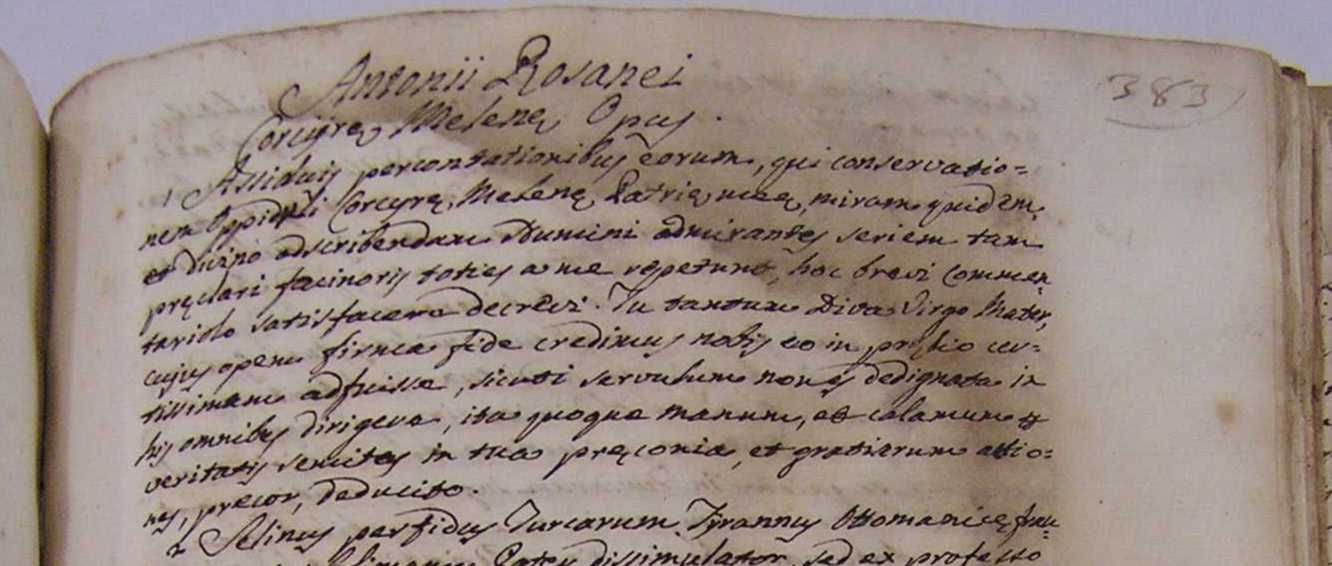 383
Antonii Rosanei
Corcyrę Melenę Opus.
1 Assiduis percontationibus eorum, qui conservatio=
nem Oppiduli Corcyrę Melenę Patrię meę, miram quidem,
et divino adscribendam Numini admirantes seriem tam
pręclari facinoris toties a me repetunt, hoc brevi commen,
tariolo satisfacere decrevi. Tu tantum Diva Virgo Mater,
cujus opem firma fide credimus nobis eo in pręlio cer=
tissimam adfuisse, sicuti servulum non es dedignata in
his omnibus dirigere, ita quoque manum, et calamum
veritatis semitas in tua pręconia, et gratiarum actio=
nes, precor, deducito.
2 Selinus perfidus Turcarum Tyrannus Ottomanicę
Pater dissimulator, sed ex professo